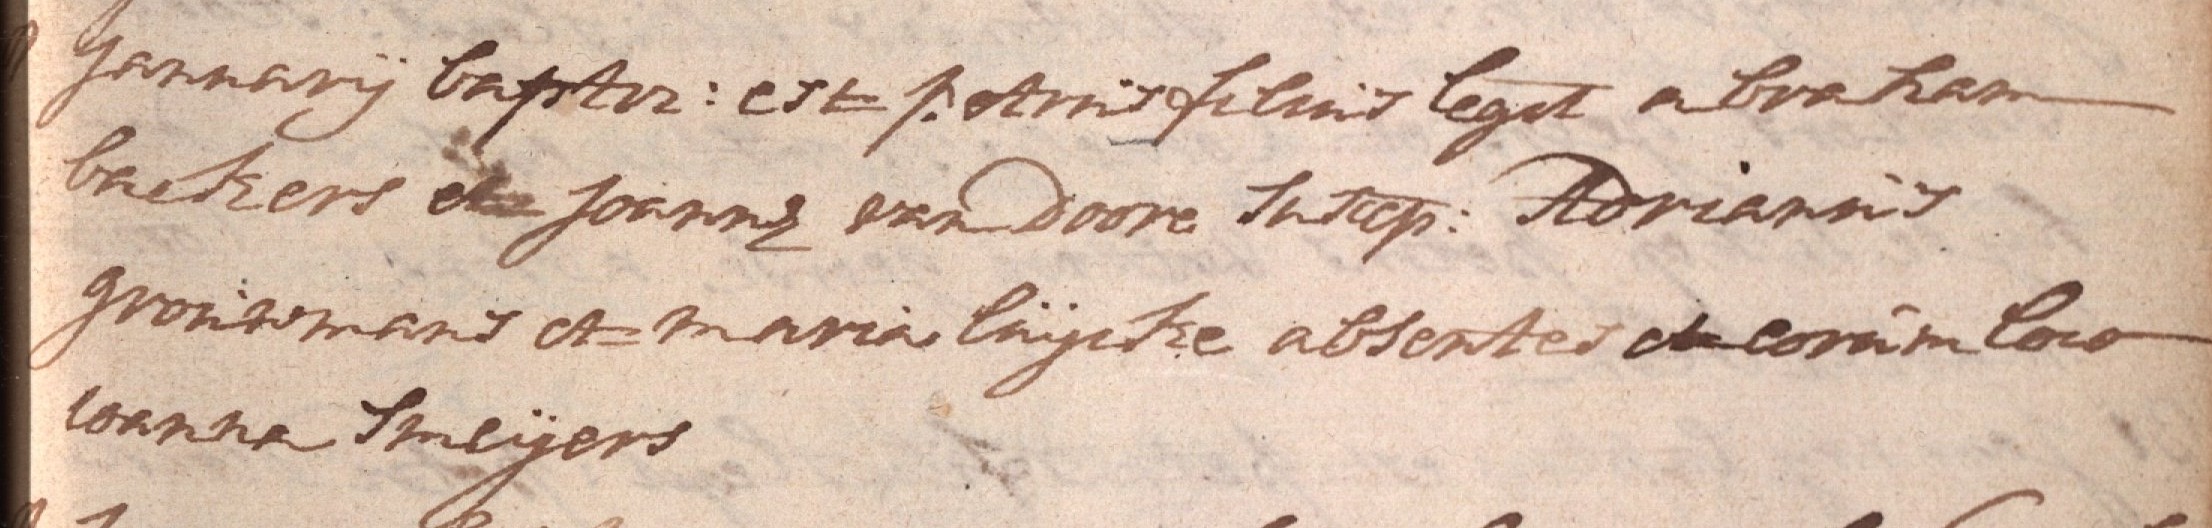 Januarij baptiz: est petrus filius legit abraham
backers et Joannę van Doore Suscep: Adrianus
grouwmans et maria luijcke absentes et eorum loco
ioanna Smeijers